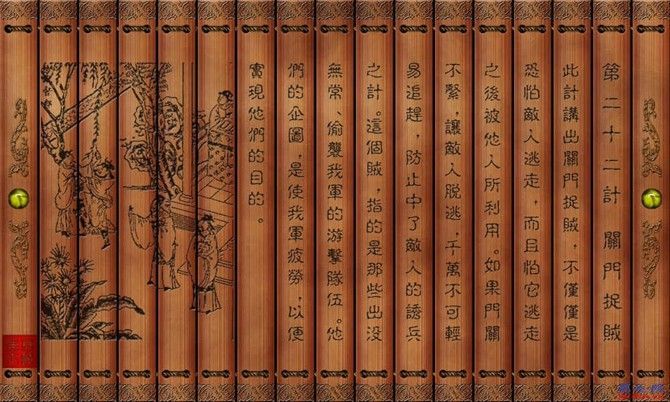 第二十二計 關門捉賊
此計講出關門捉賊，不僅僅是
恐怕敵人逃走，而且怕它逃走
之後被他人所利用。如果門關
不緊，讓敵人脱逃，千萬不可輕
易追趕，防止中了敵人的誘兵
之計。這個賊，指的是那些出没
無常、偷襲我軍的游擊隊伍。他
們的企圖，是使我軍疲勞，以便
實現他們的目的。